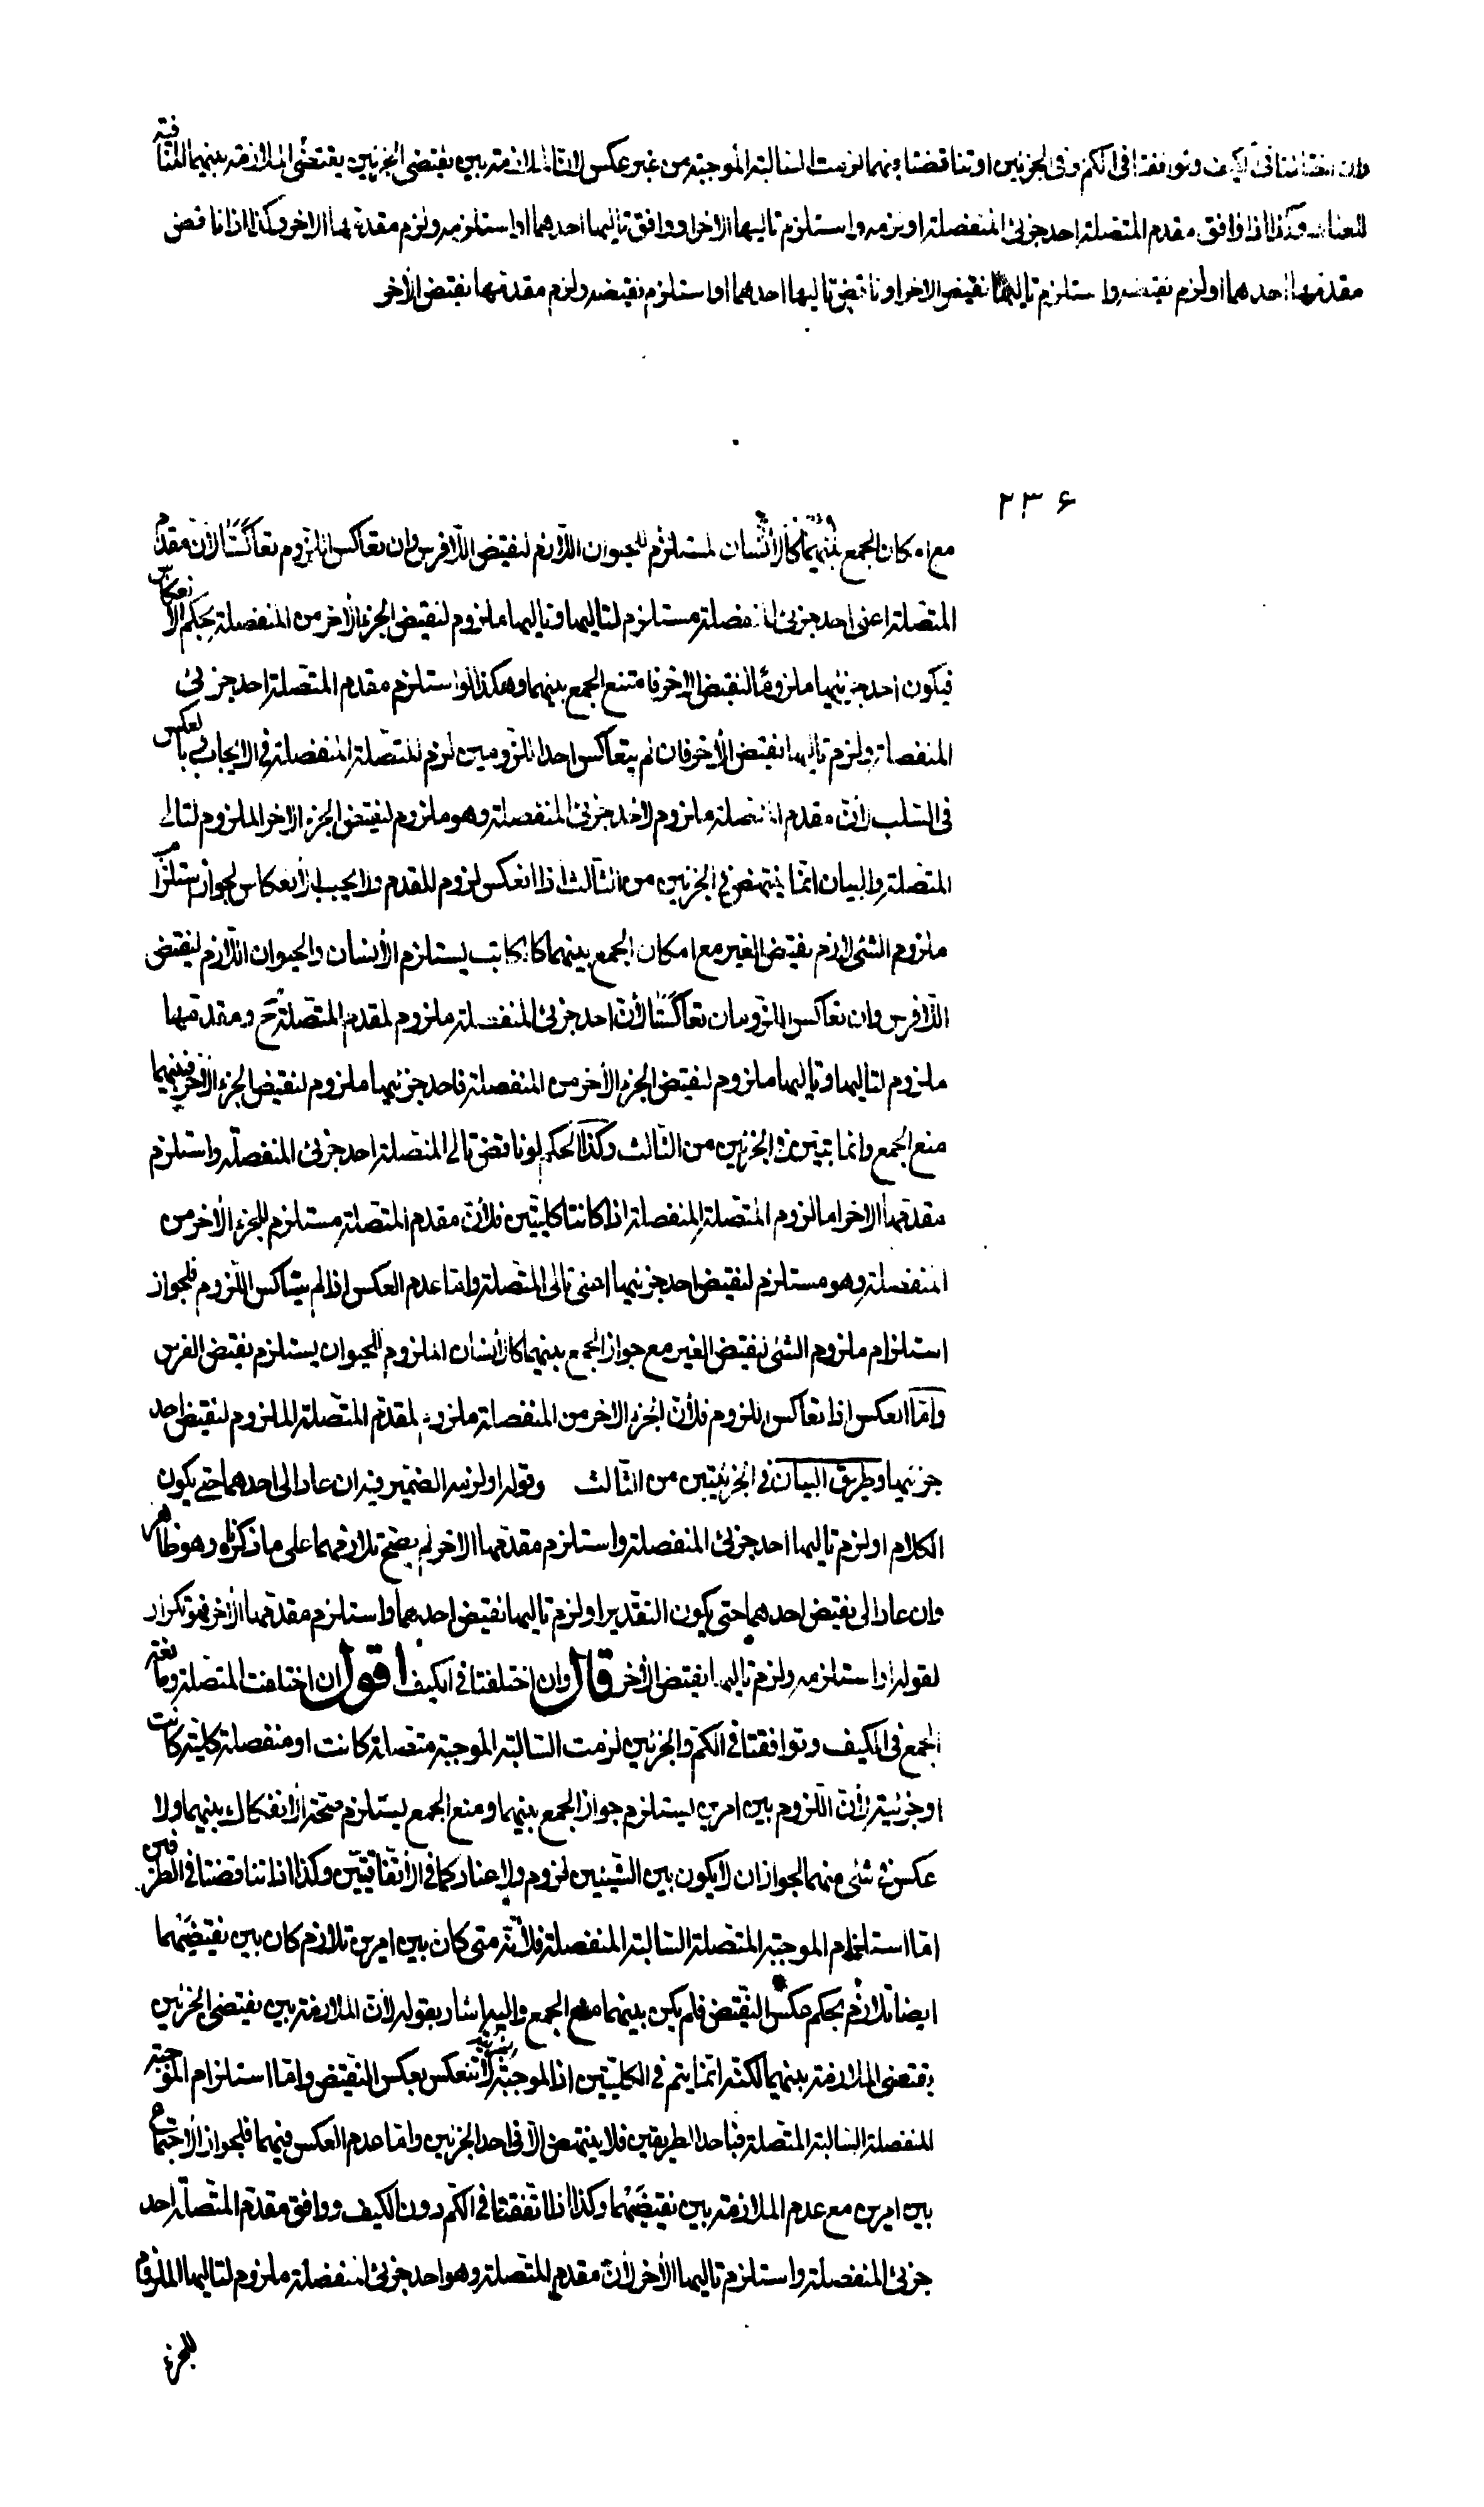 وان اختلفتا فى الكيف وتوافقتا فى الكم وفى الجزئين او تناقضتا فيهما لزمت السالبة الموجبة من غير عكس لان الملازمة بين نقيضى الجزئين يقتضى الملازمة بينهما المنافية
للعناد وكذا اذا وافق مقدم المتصلة احد جزئى المنفصلة او لزمه واستلزم تاليها الاخر او وافق تاليها احدهما او استلزمه ولزم مقدمها الاخر وكذا اذا ناقض
مقدمها احدهما او لزم نقيضه واستلزم تاليها نقيض الاخر او ناقض تاليها احدهما او استلزم نقيضه ولزم مقدمها نقيض الاخر
٢٣۶
مع امكان الجمع بينهما كالانسان المستلزم للحيوان اللازم لنقيض اللافرس وان تعاكس اللزوم تعاكستا لان مقدم
المتصلة اعنى احد جزئى المنفصلة مستلزم لتاليها وتاليها ملزوم لنقيض الجزء الاخر من المنفصلة بحكم الانعكاس
فيكون احد جزئيها ملزوما لنقيض الاخر فامتنع الجمع بينهما وهكذا لو استلزم مقدم المتصلة احد جزئى
المنفصلة ولزم تاليها نقيض الاخر فان لم يتعاكس احد اللزومين لزم المتصلة المنفصلة فى الايجاب وبالعكس
فى السلب لان مقدم المتصلة ملزوم لاحد جزئى المنفصلة وهو ملزوم لنقيض الجزء الاخر الملزوم لتالى
المتصلة والبيان انما ينتهض فى الجزئين من الثالث اذا انعكس لزوم المقدم ولا يجب الانعكاس لجواز استلزام
ملزوم الشئ لازم نقيض الغير مع امكان الجمع بينهما كالكاتب يستلزم الانسان والحيوان اللازم لنقيض
اللافرس وان تعاكس اللزومان تعاكستا لان احد جزئى المنفصلة ملزوم لمقدم المتصلة ح ومقدمها
ملزوم لتاليها وتاليها ملزوم لنقيض الجزء الاخر من المنفصلة فاحد جزئيها ملزوم لنقيض الجزء الاخر فبينهما
منع الجمع وانما يتبين فى الجزئين من الثالث وكذا الحكم لو ناقض تالى المتصلة احد جزئى المنفصلة واستلزم
مقدمها الاخر اما لزوم المتصلة المنفصلة اذا كانتا كليتين فلان مقدم المتصلة مستلزم للجزء الاخر من
المنفصلة وهو مستلزم لنقيض احد جزئيها اعنى تالى المتصلة واما عدم العكس اذا لم يتعاكس اللزوم فلجواز
استلزام ملزوم الشئ لنقيض الغير مع جواز الجمع بينهما كالانسان الملزوم للحيوان يستلزم نقيض الفرس
واما العكس اذا تعاكس اللزوم فلان الجزء الاخر من المنفصلة ملزوم لمقدم المتصلة الملزوم لنقيض احد
جزئيها وطريق البيان فى الجزئيتين من الثالث وقوله او لزمه الضمير فيه ان عاد الى احدهما حتى يكون
الكلام او لزم تاليها احد جزئى المنفصلة واستلزم مقدمها الاخر لم يصح تلازمهما على ما ذكرناه وهو ظاهر
وان عاد الى نقيض احدهما حتى يكون التقدير او لزم تاليها نقيض احدهما واستلزم مقدمها الاخر فهو تكرار
لقوله اذا استلزمه ولزم تاليها نقيض الاخر قال وان اختلفتا فى الكيف اقول ان اختلفت المتصلة ومانعة
الجمع فى الكيف وتوافقتا فى الكم والجزئين لزمت السالبة الموجبة متصلة كانت او منفصلة كلية كانت
او جزئية لان اللزوم بين امرين يستلزم جواز الجمع بينهما ومنع الجمع يستلزم صحة الانفكاك بينهما ولا
عكس فى شئ منهما لجواز ان لا يكون بين الشيئين لزوم ولا عناد كما فى الاتفاقيتين وكذا اذا تناقضتا فى الطرفين
اما استلزام الموجبة المتصلة السالبة المنفصلة فلانه متى كان بين امرين تلازم كان بين نقيضيهما
ايضا تلازم بحكم عكس النقيض فلم يكن بينهما منع الجمع واليه اشار بقوله لان الملازمة بين نقيضى الجزئين
يقتضى الملازمة بينهما لكنه انما يتم فى الكليتين اذ الموجبة الجزئية لا تنعكس بعكس النقيض واما استلزام الموجبة
المنفصلة السالبة المتصلة فباحد الطريقين فلا ينتهض الا فى احد الجزئين واما عدم العكس فيهما فلجواز الاجتماع
بين امرين مع عدم الملازمة بين نقيضيهما وكذا اذا اتفقتا فى الكم دون الكيف ووافق مقدم المتصلة احد
جزئى المنفصلة واستلزم تاليها الاخر لان مقدم المتصلة وهو احد جزئى المنفصلة ملزوم لتاليها الملزوم
للجزء